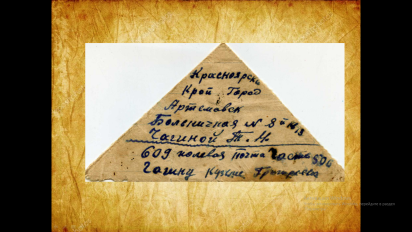 Красноярски
Край Город
Артемовск
Болничная N 8
Чагиной Т. И.
609 полевая почта часть 506
Чагину Кузьме Григореев